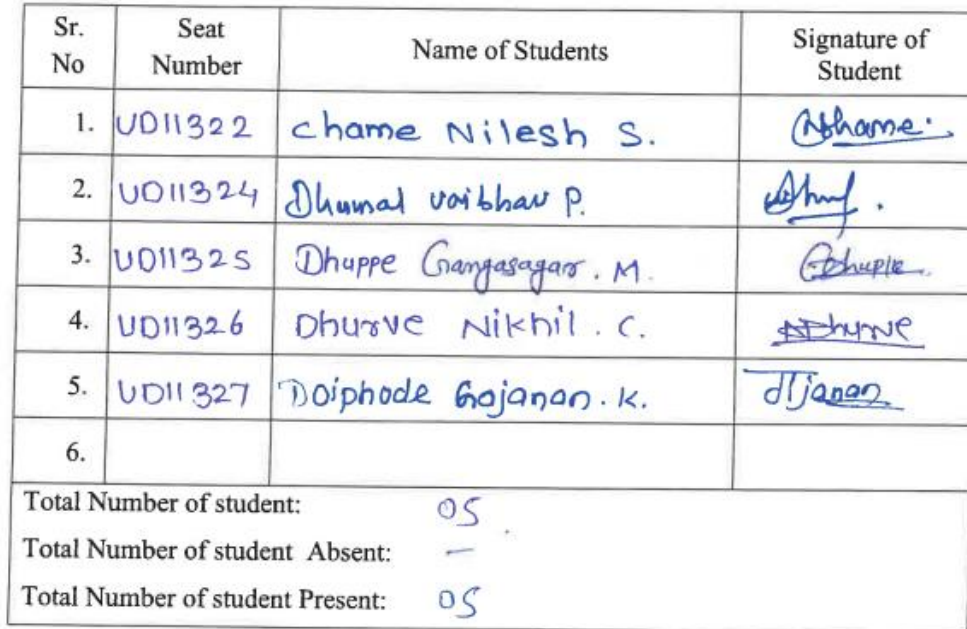 Sr. No Seat Number Name of Students Signature of Student
1. UD11322 Chame Nilesh S. NShame.
2. UD11324 Dhumal vaibhav P.
3. UD11325 Dhuppe Gangasagar. M.
4. UD11326 Dhurve Nikhil. C. NDhurve
5. UD11327 Doiphode Gajanan. K.
6.
Total Number of student: 05
Total Number of student Absent: —
Total Number of student Present: 05